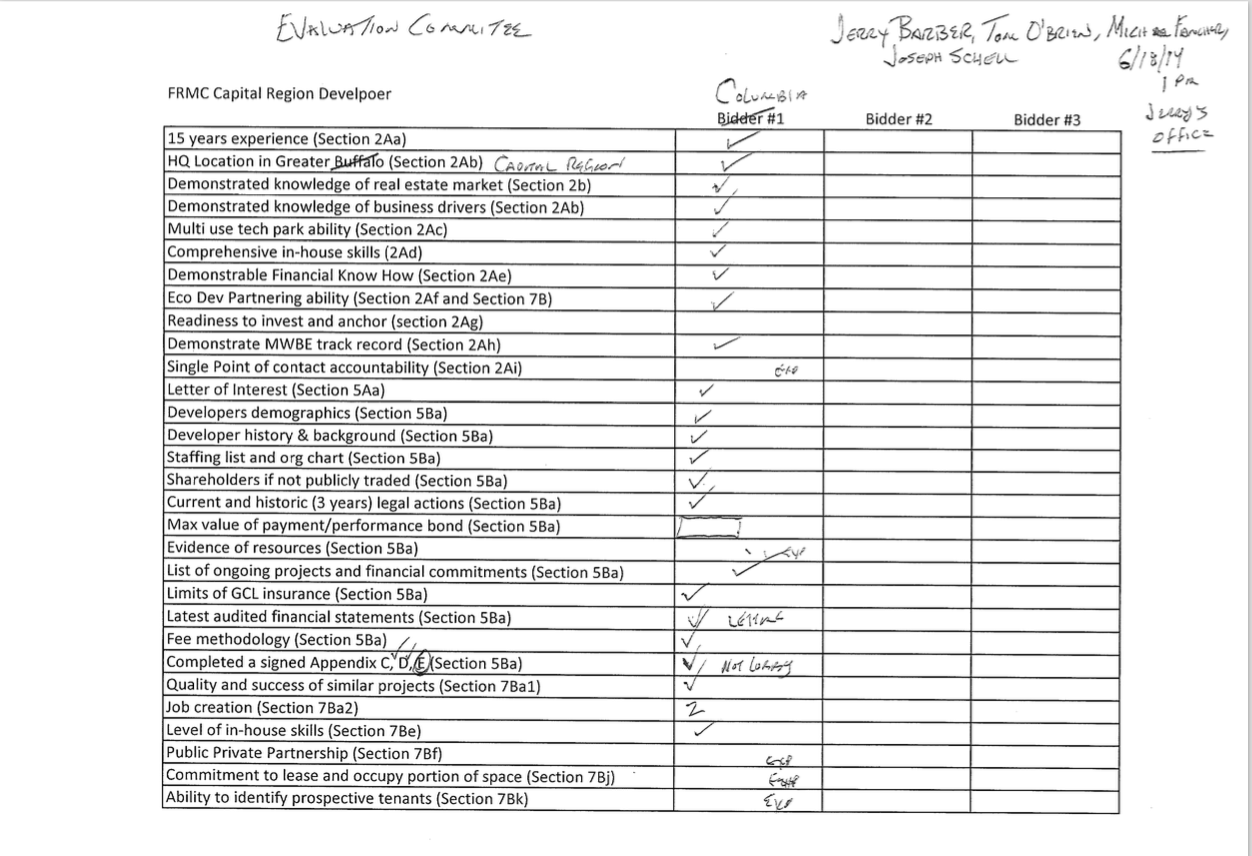 EVALUATION COMMITTEE
JERRY BARBER, TOM O'BRIEN, MICHAEL FANCHER,
JOSEPH SCHELL
6/18/14
1 PM
JERRY'S
OFFICE
FRMC Capital Region Develpoer
COLUMBIA
Bidder #1 Bidder #2 Bidder #3
15 years experience (Section 2Aa) ✓
HQ Location in Greater Buffalo (Section 2Ab) CAPITAL REGION ✓
Demonstrated knowledge of real estate market (Section 2b) ✓
Demonstrated knowledge of business drivers (Section 2Ab) ✓
Multi use tech park ability (Section 2Ac) ✓
Comprehensive in-house skills (2Ad) ✓
Demonstrable Financial Know How (Section 2Ae) ✓
Eco Dev Partnering ability (Section 2Af and Section 7B) ✓
Readiness to invest and anchor (section 2Ag)
Demonstrate MWBE track record (Section 2Ah) ✓
Single Point of contact accountability (Section 2Ai)
Letter of Interest (Section 5Aa) ✓
Developers demographics (Section 5Ba) ✓
Developer history & background (Section 5Ba) ✓
Staffing list and org chart (Section 5Ba) ✓
Shareholders if not publicly traded (Section 5Ba) ✓
Current and historic (3 years) legal actions (Section 5Ba) ✓
Max value of payment/performance bond (Section 5Ba)
Evidence of resources (Section 5Ba)
List of ongoing projects and financial commitments (Section 5Ba) ✓
Limits of GCL insurance (Section 5Ba) ✓
Latest audited financial statements (Section 5Ba) ✓ LETTER
Fee methodology (Section 5Ba) ✓
Completed a signed Appendix C, D, E (Section 5Ba) ✓ NOT LOBBY
Quality and success of similar projects (Section 7Ba1) ✓
Job creation (Section 7Ba2) 2
Level of in-house skills (Section 7Be) ✓
Public Private Partnership (Section 7Bf)
Commitment to lease and occupy portion of space (Section 7Bj)
Ability to identify prospective tenants (Section 7Bk)